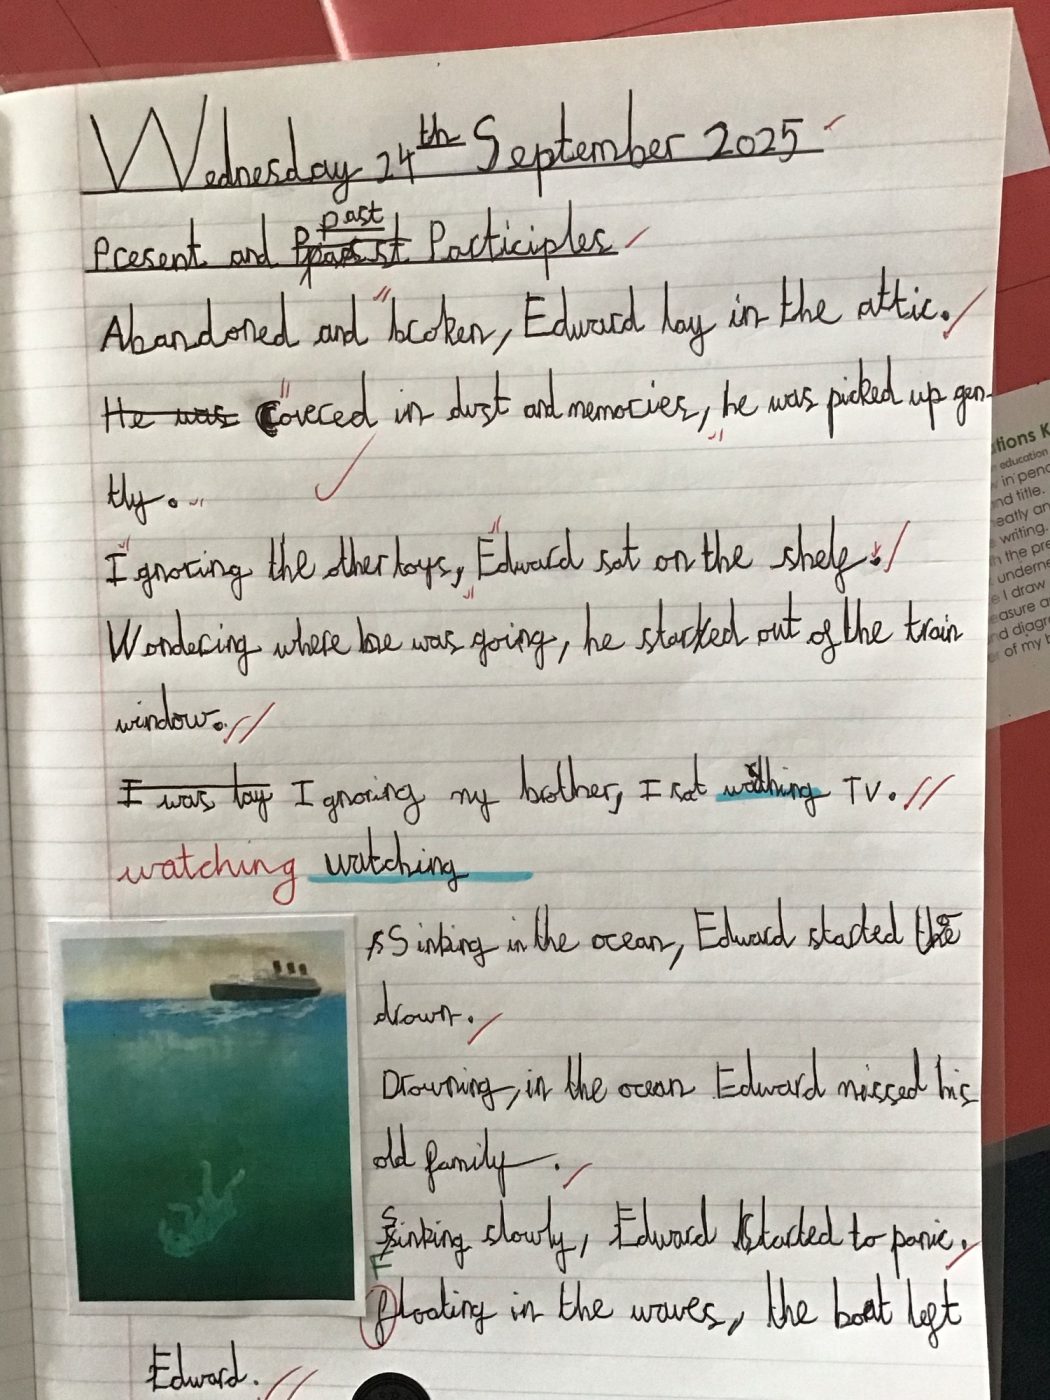 Wednesday 24th September 2025
past
Present and Participles
Abandoned and broken, Edward lay in the attic.
He was Covered in dust and memories, he was picked up gen-
tly.
Ignoring the other toys, Edward sat on the shelf.
Wondering where he was going, he starked out of the train
window.
I was tay Ignoring my brother, I sat wathing TV.
watching watching
Sinking in the ocean, Edward started the
drown.
Drowning, in the ocean Edward missed his
old family.
Sinking slowly, Edward started to panic.
F
floating in the waves, the boat left
Edward.
tions K
education
in penc
nd title.
eatly an
writing.
h the pre
underne
I draw
easure a
nd diagr
of my b